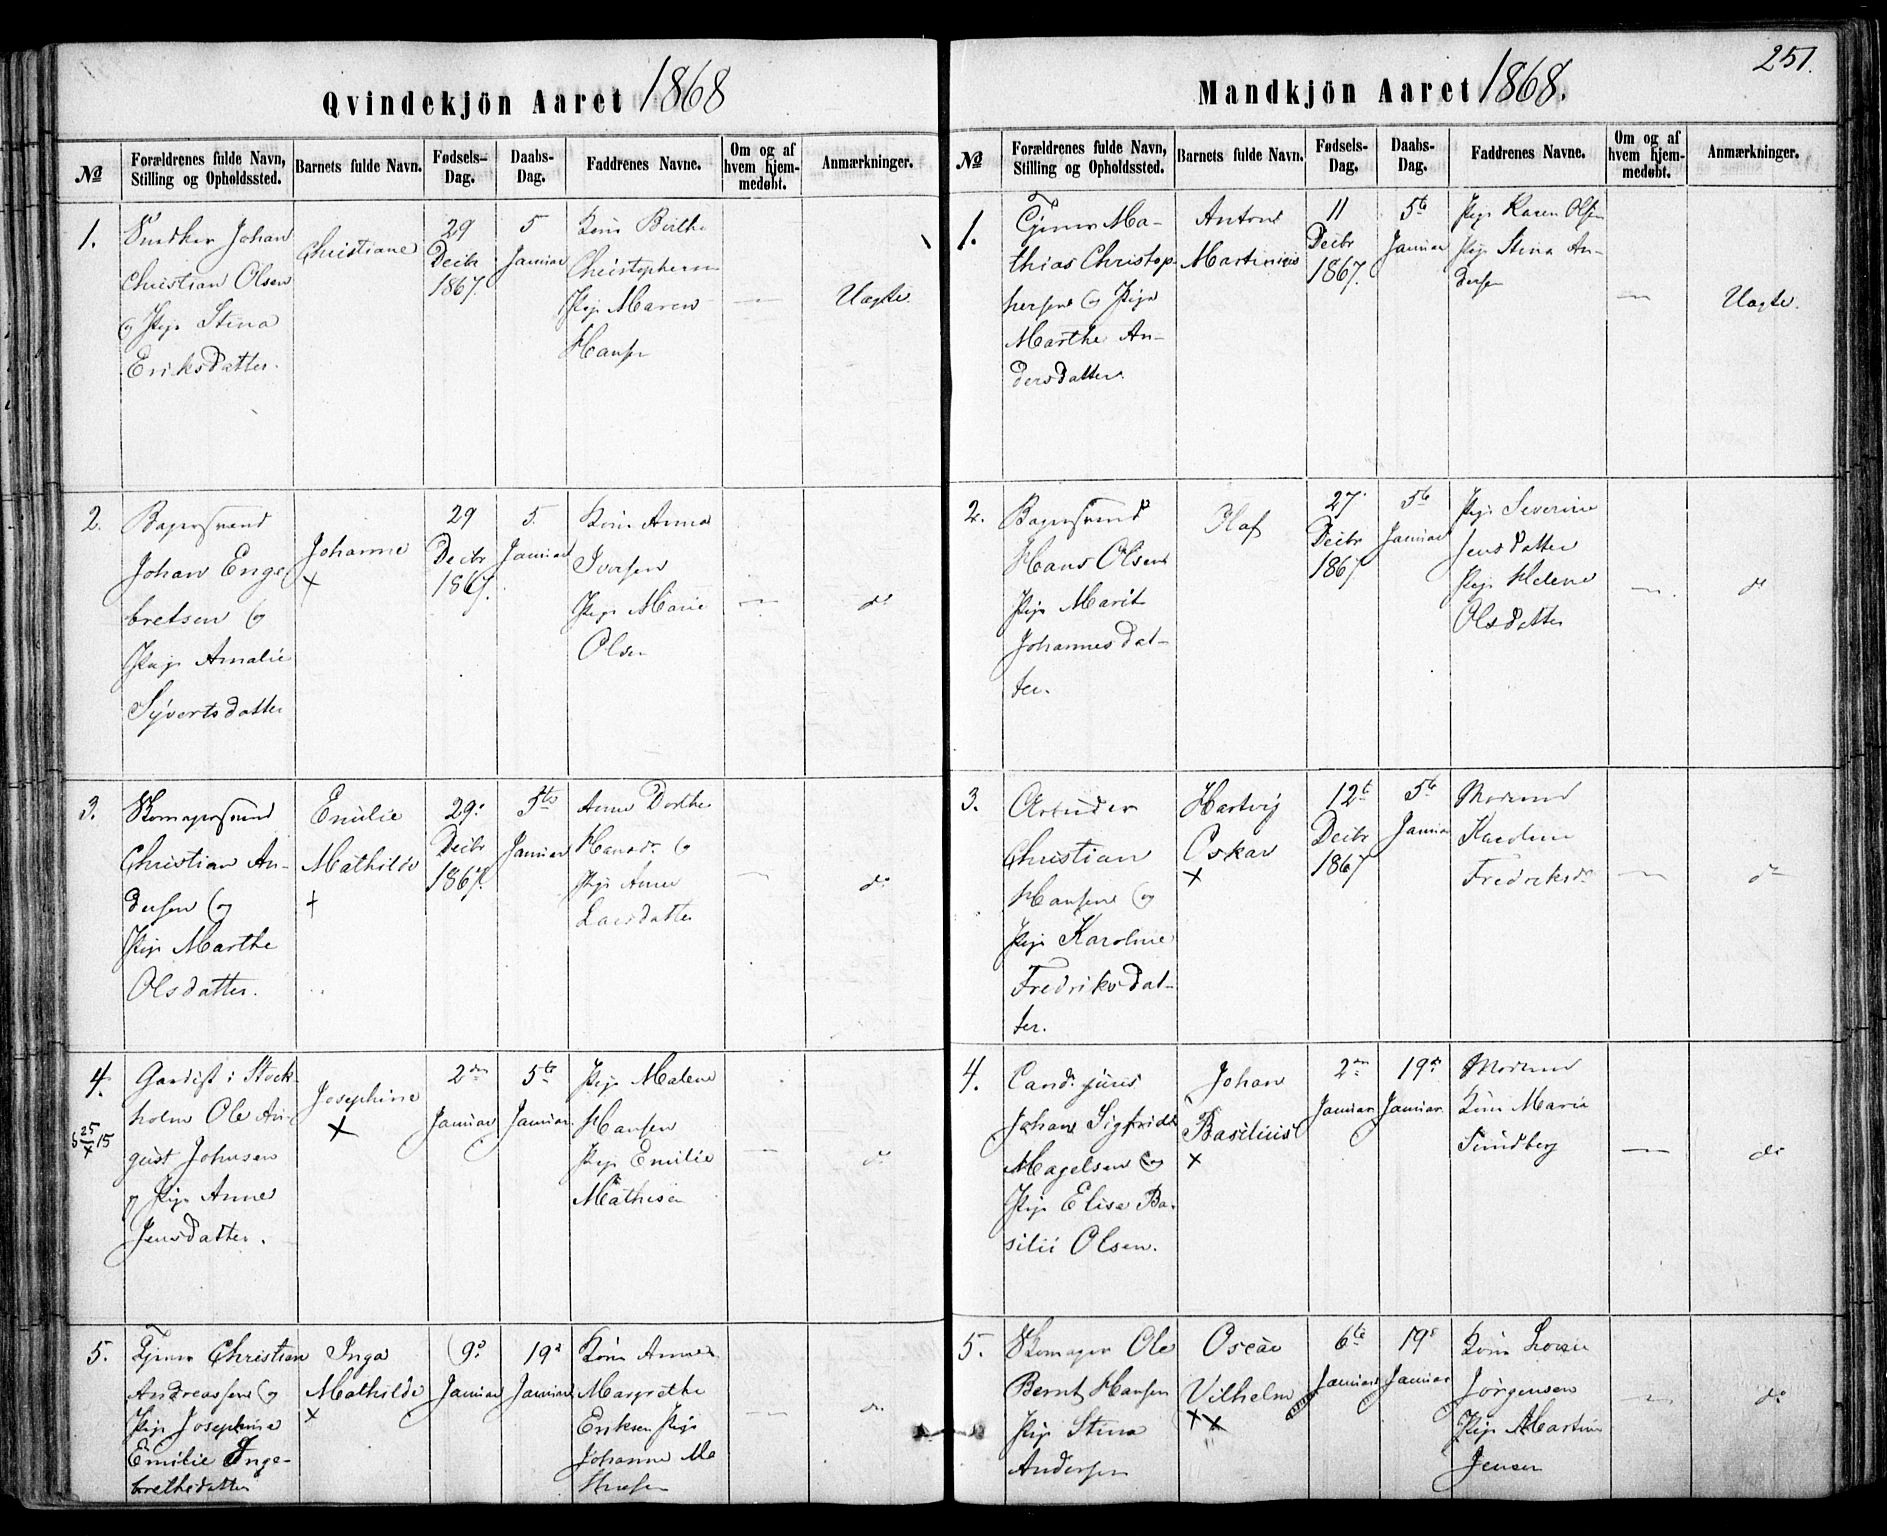 Qvindekjön Aaret 1868
№
Forældrenes fulde Navn, Stilling og Opholdssted.
Barnets fulde Navn.
Fødsels-Dag.
Daabs-Dag.
Faddrenes Navne.
Om og af hvem hjem-medøbt.
Anmærkninger.
1.
Snedker Johan
Christian Olsen
og Pige Stina
Eriksdatter.
Christiane
29
Decbr
1867.
5
Januar
Kone Birthe
Christophersen
Pige Maren
Hansen
—
Uægte.
2.
Bagersvend
Johan Enge
bretsen og
Pige Amalie
Syvertsdatter
Johanne
+
29
Decbr
1867.
5.
Januar
Kone Anna
Iversen
Pige Marie
Olsen
—
do
3.
Skomagersvend
Christian An-
dersen og
Pige Marthe
Olsdatter.
Emilie
Mathilde
+
29.
Decbr
1867.
5te
Januar
Anne Dorthe
Hansd. og
Pige Anne
Larsdatter
—
do
4.
b 25/X 15
Gardist i Stock-
holm Ole Au-
gust Johnsen
og Pige Anne
Jensdatter.
Josephine
+
2den
Januar
5te
Januar
Pige Malene
Hansen
Pige Emilie
Mathisen
—
do
5.
Tjener Christian
Andreassen og
Pige Josephine
Emilie Inge-
brethsdatter
Inga
Mathilde
+
9de
Januar
19de
Januar
Kone Anne
Margrethe
Eriksen Pige
Johanne Ma
thiesen
—
do
Mandkjön Aaret 1868.
251.
№
Forældrenes fulde Navn, Stilling og Opholdssted.
Barnets fulde Navn.
Fødsels-Dag.
Daabs-Dag.
Faddrenes Navne.
Om og af hvem hjem-medøbt.
Anmærkninger.
1.
Tjener Ma-
thias Christop-
hersen og Pige
Marthe An-
dersdatter.
Anton
Martinius
11
Decbr
1867.
5te
Januar
Pige Karen Olsen
Pige Stina An-
dersen
—
Uægte.
2.
Bagersvend
Hans Olsen
Pige Marit
Johannesdat-
ter.
Olaf
27
Decbr
1867
5te
Januar
Pige Severine
Jensdatter
Pige Helene
Olsdatter
—
do
3.
Arbeider
Christian
Hansen og
Pige Karoline
Fredriksdat-
ter.
Hartvig
Oskar
+
12te
Decbr
1867
5te
Januar
Moderen
Karoline
Fredriksd.
—
do
4.
Cand. juris
Johan Sigfried
Magelsen og
Pige Elise Ba-
silii Olsen.
Johan
Basilius
+
2den
Januar
19de
Januar.
Moderen
Kone Marie
Sundberg
—
do
5.
Skomager Ole
Bernt Hansen
Pige Stina
Andersen
Oscar
Vilhelm
++
6te
Januar
19de
Januar
Kone Lovise
Jörgensen
Pige Martine
Jensen
—
do